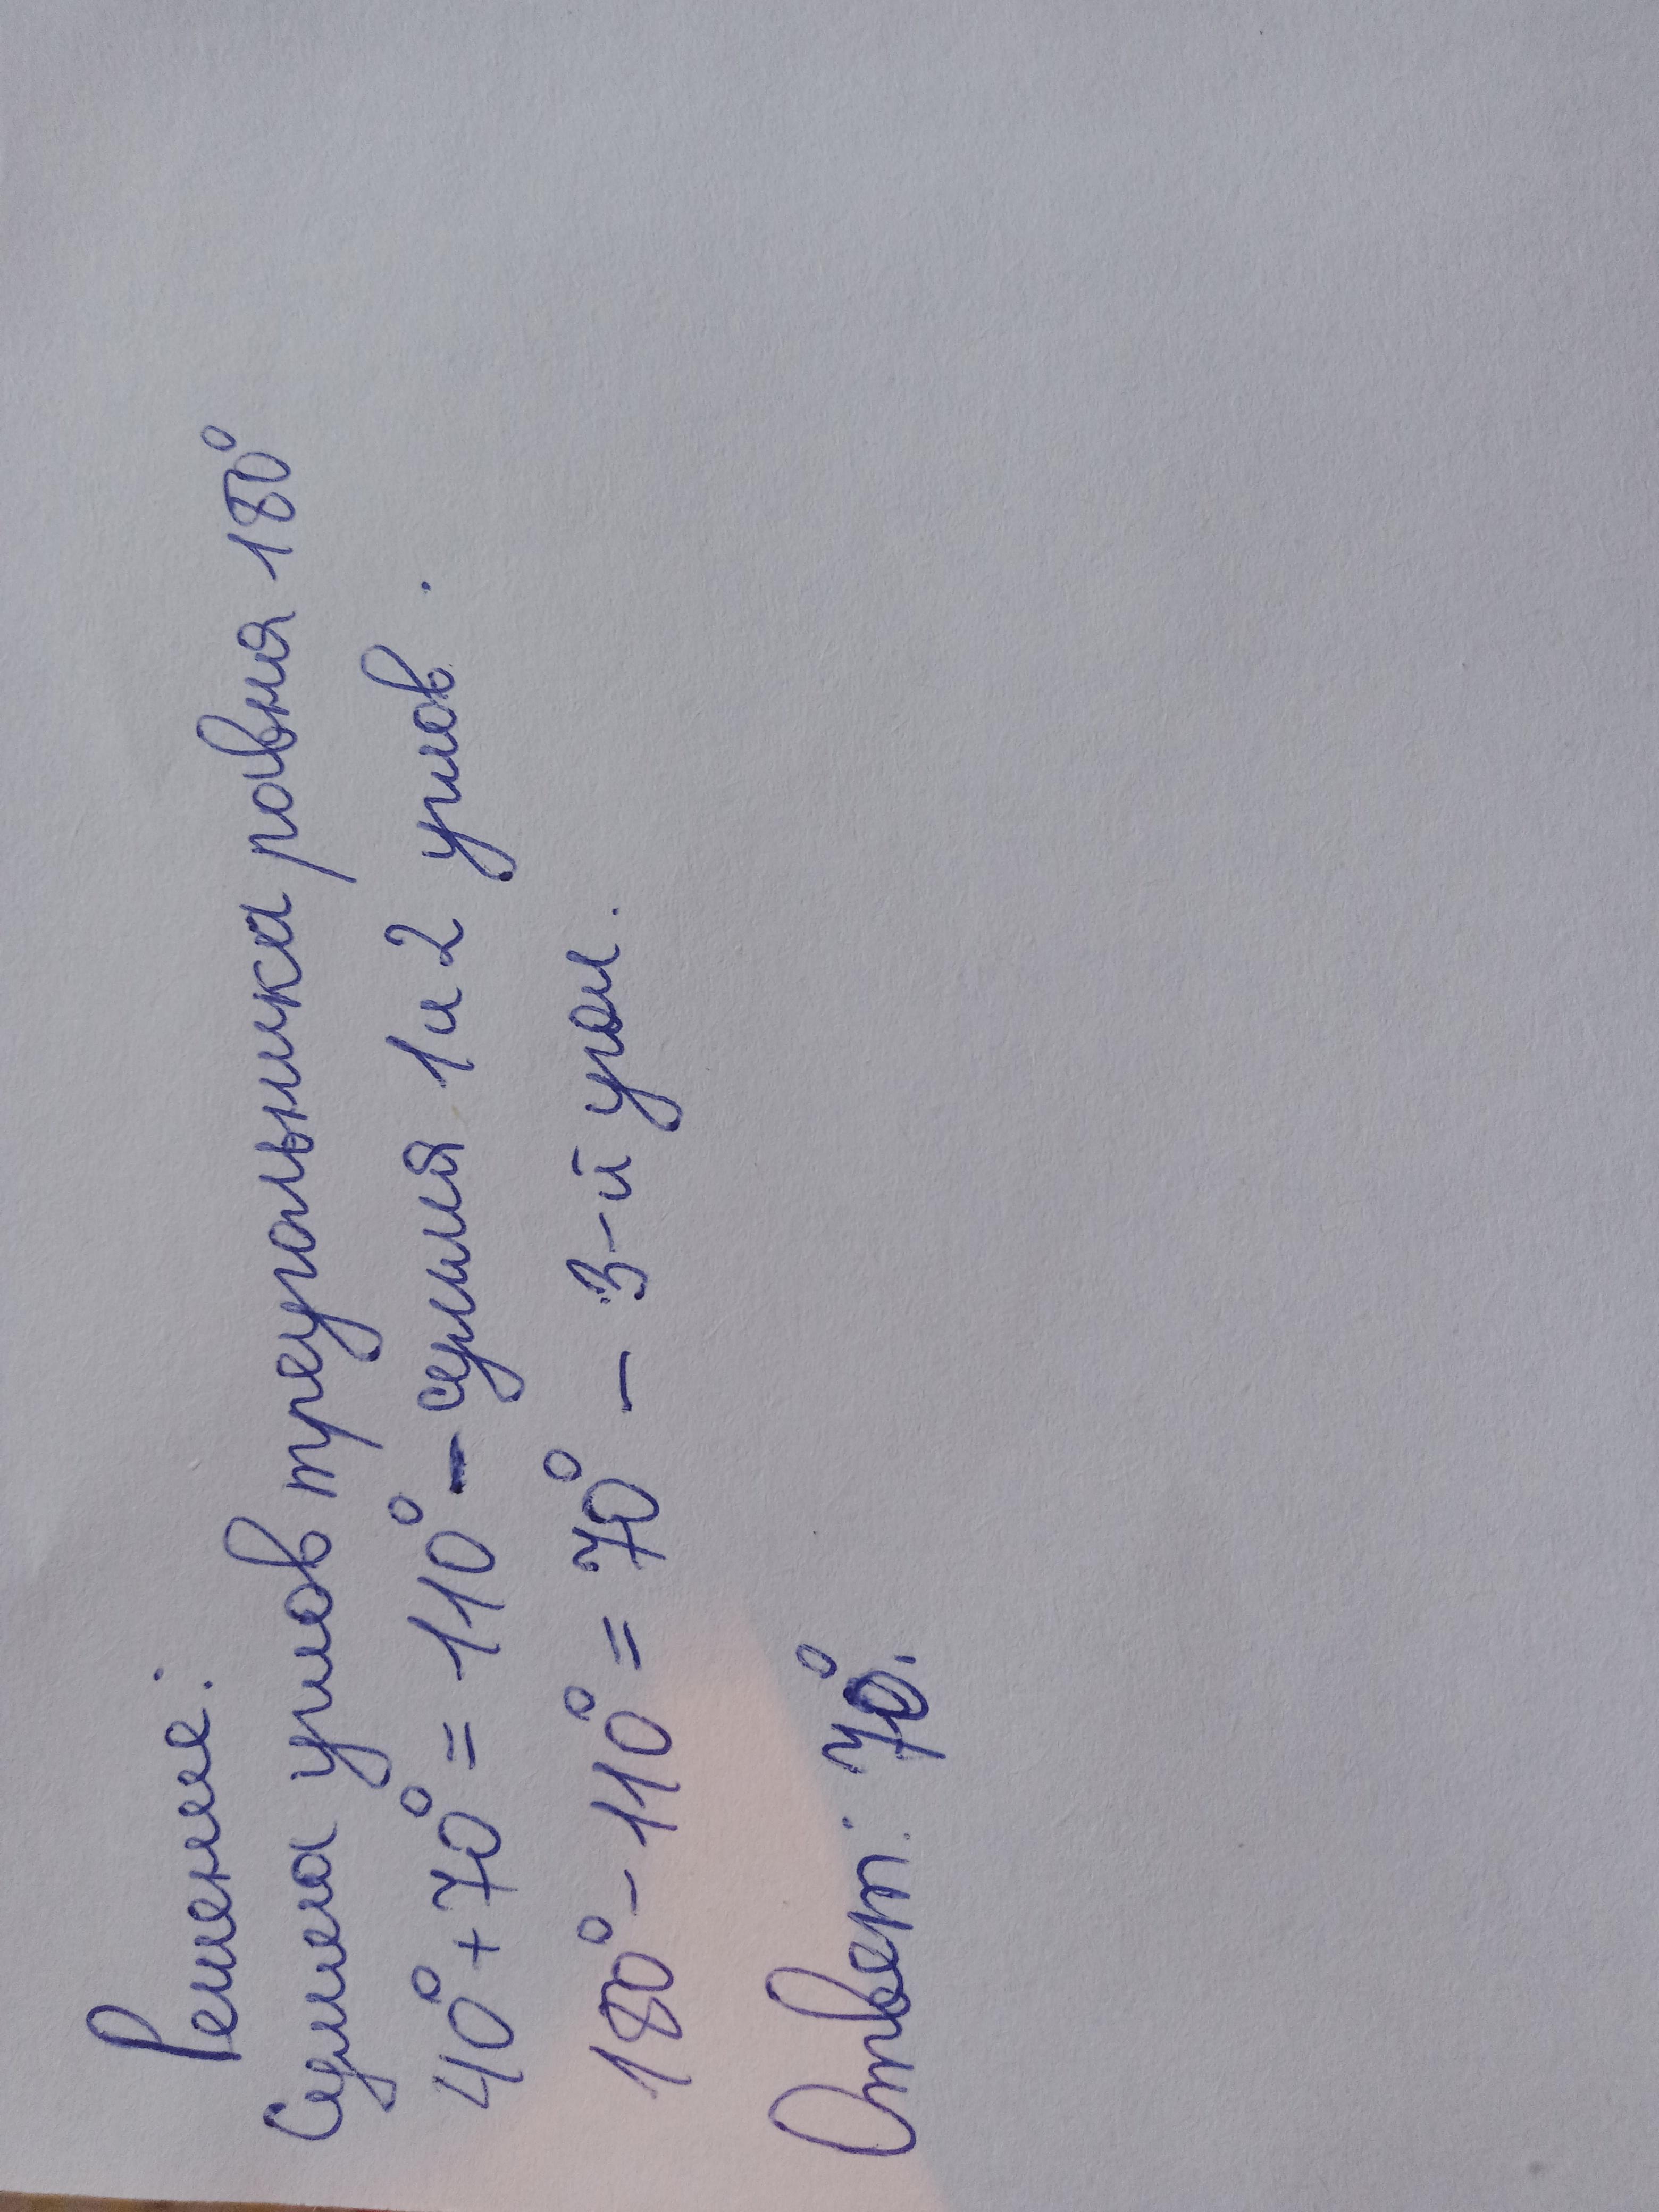 Решение:
Сумма углов треугольника ровня 180°
40° + 70° = 110° - сумия 1 и 2 углов.
180° - 110° = 70° - 3-й угол.
Ответ: 70°.